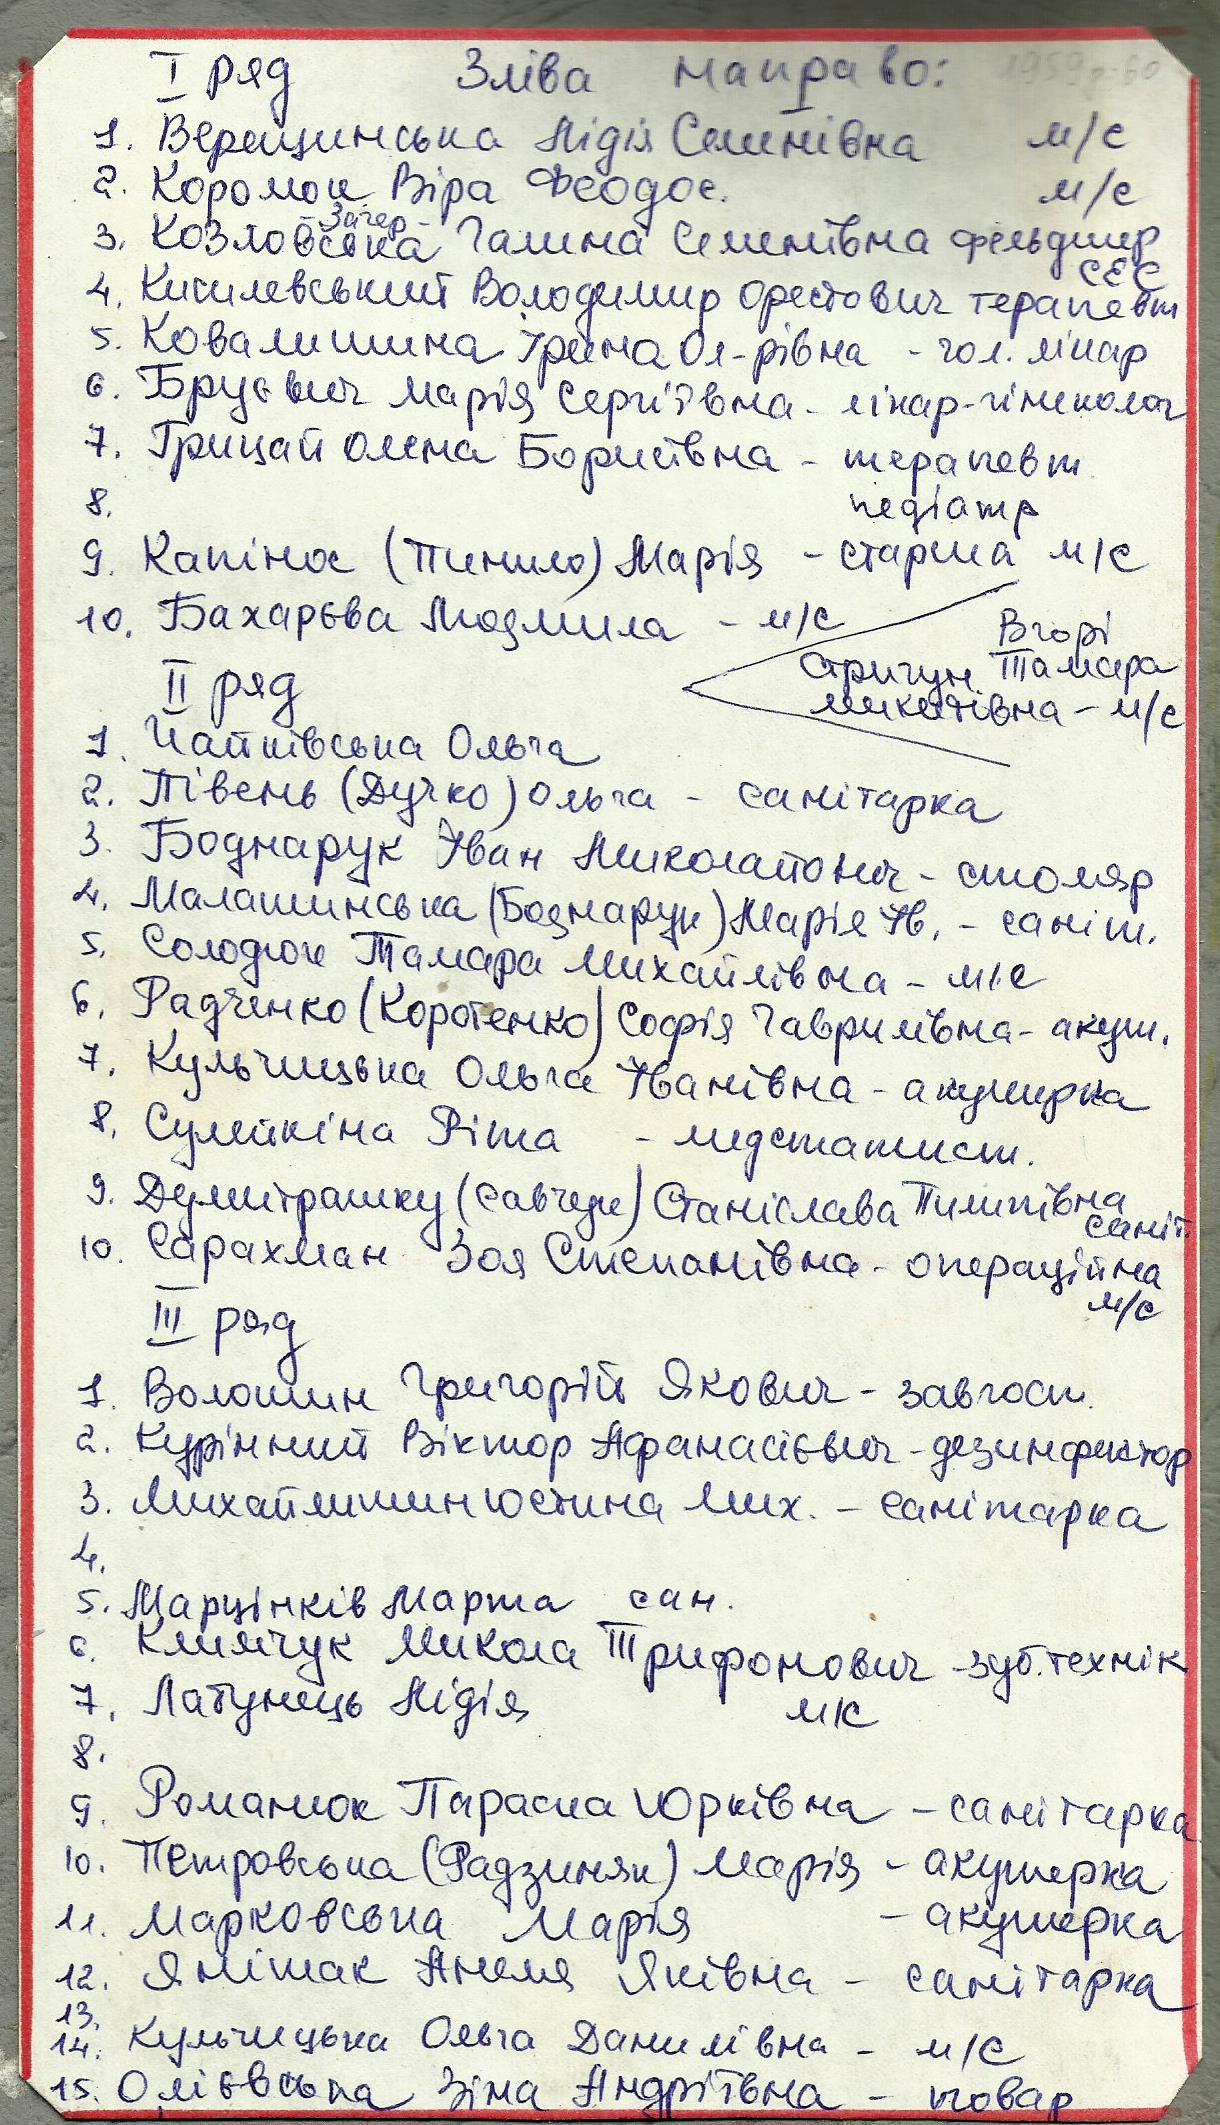 I ряд Зліва направо: 1959р-60
1. Верещинська Лідія Семенівна м/с
2. Коромок Віра Феодос. м/с
Загер-
3. Козловська Галина Семенівна фельдшер
СЕС
4. Кисилевський Володимир Орестович терапевт
5. Ковалишина Ірина Ол-рівна - гол. лікар
6. Брусвич Марія Сергіївна - лікар-гінеколог
7. Грицай Олена Борисівна - терапевт
8. педіатр
9. Капінос (Пинило) Марія - старша м/с
10. Бахарєва Людмила - м/с
Вгорі
Стригун Тамара
Микитівна - м/с
II ряд
1. Чайківська Ольга
2. Півень (Дучко) Ольга - санітарка
3. Боднарук Іван Миколайович - столяр
4. Малашинська (Боднарук) Марія Ів. - саніт.
5. Солодюк Тамара Михайлівна - м/с
6. Радченко (Коротенко) Софія Гаврилівна - акуш.
7. Кульчицька Ольга Іванівна - акушерка
8. Сулейкіна Ріта - медстатист.
9. Думитрашку (Савчук) Станіслава Пилипівна
саніт.
10. Сарахман Зоя Степанівна - операційна
м/с
III ряд
1. Волошин Григорій Якович - завгосп.
2. Курінний Віктор Афанасієвич - дезинфектор
3. Михайлишин Юстина Мих. - санітарка
4.
5. Марцінків Марта сан.
6. Климчук Микола Трифонович - зуб.технік
7. Латунець Лідія м/с
8.
9. Романюк Параска Юрківна - санітарка
10. Петровська (Радзиняк) Марія - акушерка
11. Марковська Марія - акушерка
12. Янішак Анеля Яківна - санітарка
13.
14. Кульчицька Ольга Данилівна - м/с
15. Олієвська Зіна Андріївна - повар